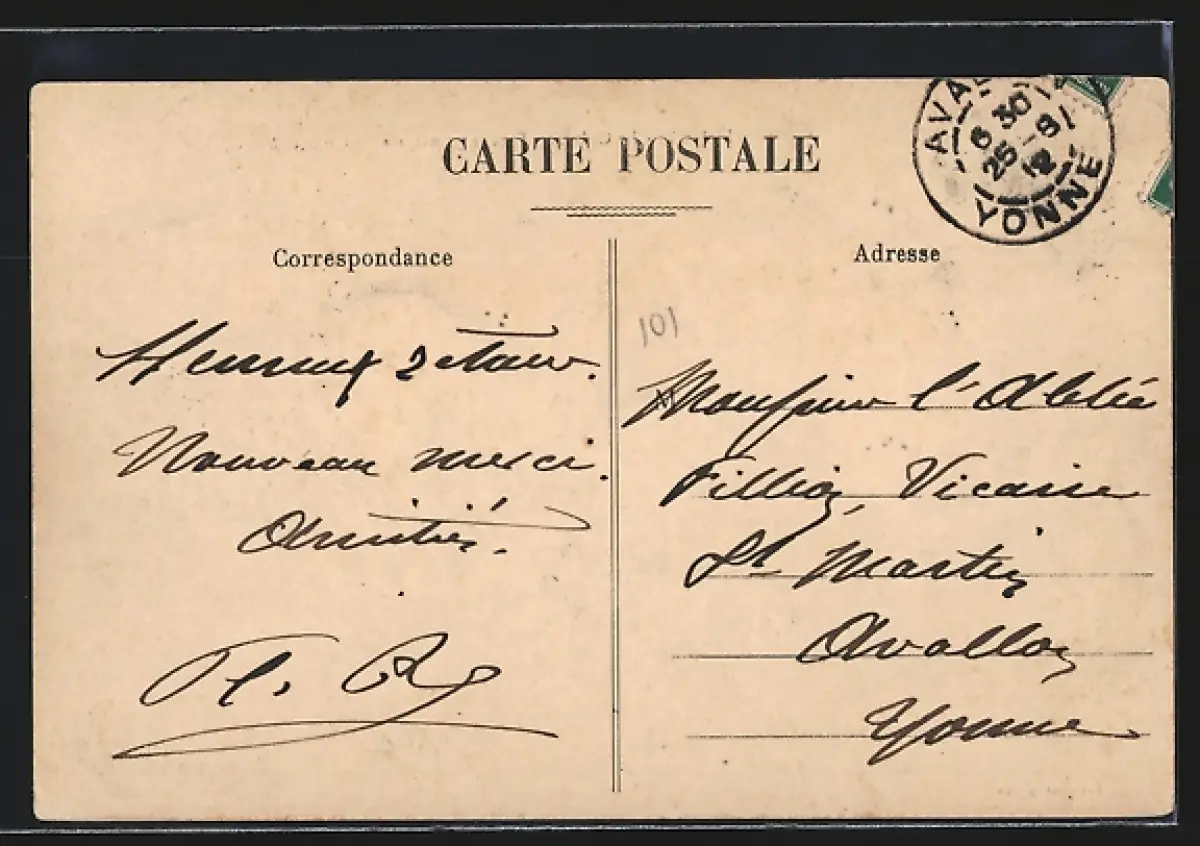 CARTE POSTALE
AVA
6 30
25 - 8
12
YONNE
Correspondance
Adresse
101
Heureux retour.
Nouveau merci.
Amitiés.
Monsieur l'Abbé
Vicaire
St Martin
Avallon
Yonne